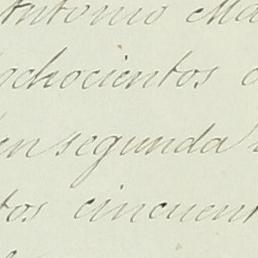 Antonio Ma
ochocientos
en segunda
tos cincuent